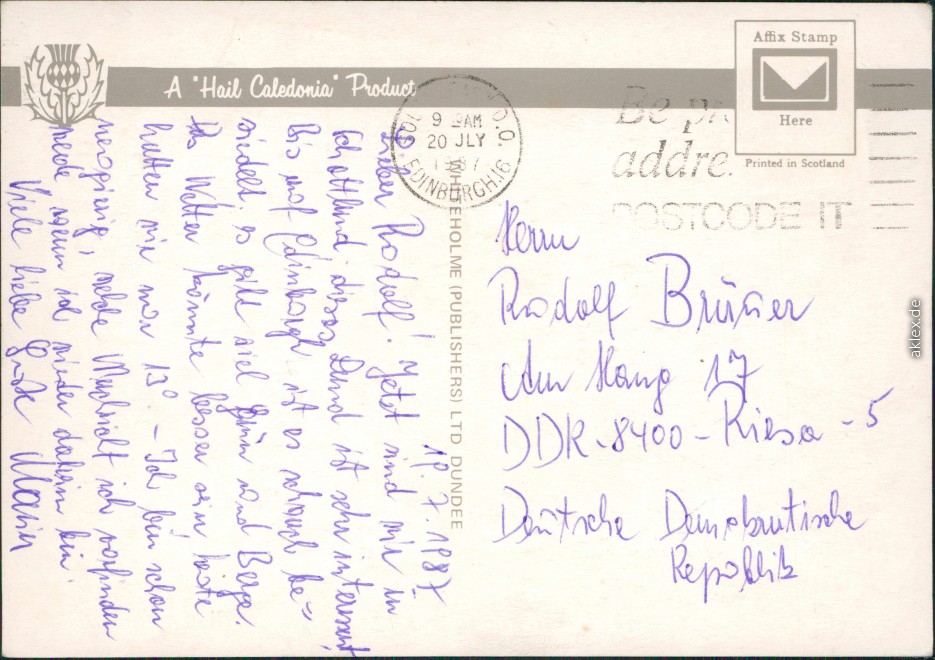 A "Hail Caledonia" Product
Affix Stamp
Here
Printed in Scotland
9 AM
20 JLY
1987
EDINBURGH.16
Be pr
addre.
POSTCODE IT
WHITEHOLME (PUBLISHERS) LTD DUNDEE
19.7.1987
Lieber Rudolf! Jetzt sind wir in
Schottland dieses Land ist sehr interessant
Bis auf Edinburgh ist es schwach be-
siedelt. Es gibt viel Grün und Berge.
Das Wetter könnte besser sein heute
hatten wir nur 13° - Ich bin schon
neugierig, welche Nachricht ich vorfinden
werde wenn ich wieder daheim bin.
Viele liebe Grüße
Herrn
Rudolf
Am Hang 17
DDR-8400-Riesa-5
Deutsche Demokratische
Republik
aklex.de